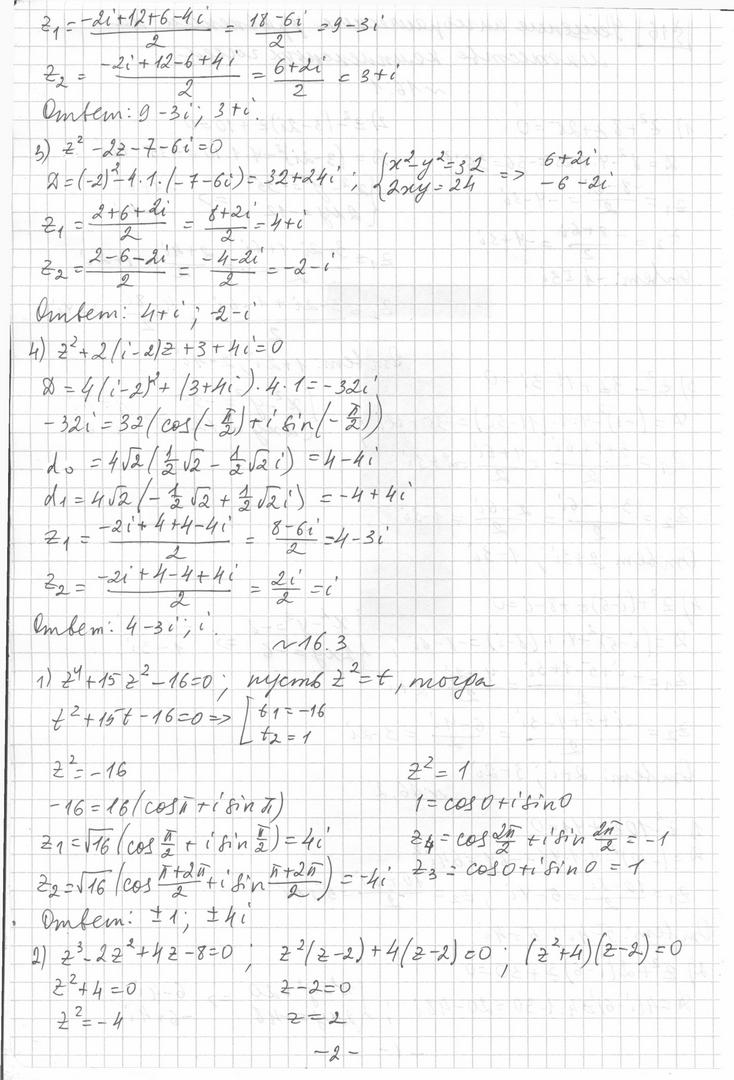 z₁ = (-2i+12+6-4i)/2 = (18-6i)/2 = 9-3i
z₂ = (-2i+12-6+4i)/2 = (6+2i)/2 = 3+i
Ответ: 9-3i; 3+i.
3) z²-2z-7-6i=0
D=(-2)²-4·1·(-7-6i)=32+24i; {x²-y²=32 2xy=24 => 6+2i -6-2i
z₁ = (2+6+2i)/2 = (8+2i)/2 = 4+i
z₂ = (2-6-2i)/2 = (-4-2i)/2 = -2-i
Ответ: 4+i; -2-i
4) z²+2(i-2)z+3+4i=0
D=4(i-2)²+(3+4i)·4·1=-32i
-32i=32(cos(-π/2)+i sin(-π/2))
d₀ = 4√2(1/2√2 - 1/2√2i) = 4-4i
d₁ = 4√2(-1/2√2 + 1/2√2i) = -4+4i
z₁ = (-2i+4+4-4i)/2 = (8-6i)/2 = 4-3i
z₂ = (-2i+4-4+4i)/2 = 2i/2 = i
Ответ: 4-3i; i.
~16.3
1) z⁴+15z²-16=0; пусть z²=t, тогда
t²+15t-16=0 => [t₁=-16 t₂=1
z²=-16 z²=1
-16=16(cosπ+i sinπ) 1=cos0+i sin0
z₁=√16(cos π/2 + i sin π/2)=4i z₄=cos 2π/2 + i sin 2π/2 = -1
z₂=√16(cos (π+2π)/2 + i sin (π+2π)/2) = -4i z₃ = cos0+i sin0 = 1
Ответ: ±1; ±4i
2) z³-2z²+4z-8=0; z²(z-2)+4(z-2)=0; (z²+4)(z-2)=0
z²+4=0 z-2=0
z²=-4 z=2
-2-